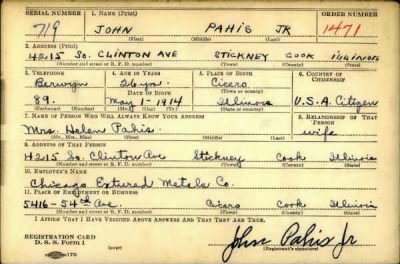 SERIAL NUMBER 1. NAME (Print) ORDER NUMBER
719 JOHN PAHIS JR 1471
(First) (Middle) (Last)
2. ADDRESS (Print)
4215 So. CLINTON AVE STICKNEY COOK ILLINOIS
(Number and street or R. F. D. number) (Town) (County) (State)
3. TELEPHONE 4. AGE IN YEARS 5. PLACE OF BIRTH 6. COUNTRY OF CITIZENSHIP
Berwyn 26 yrs. Cicero
DATE OF BIRTH (Town or county)
89. May 1-1914 Illinois U.S.A. Citizen
(Exchange) (Number) (Mo.) (Day) (Yr.) (State or country)
7. NAME OF PERSON WHO WILL ALWAYS KNOW YOUR ADDRESS 8. RELATIONSHIP OF THAT PERSON
Mrs. Helen Pahis wife
(Mr., Mrs., Miss) (First) (Middle) (Last)
9. ADDRESS OF THAT PERSON
4215 So. Clinton Ave Stickney Cook Illinois
(Number and street or R. F. D. number) (Town) (County) (State)
10. EMPLOYER'S NAME
Chicago Metals Co.
11. PLACE OF EMPLOYMENT OR BUSINESS
5416-54th Ave. Cicero Cook Illinois
(Number and street or R. F. D. number) (Town) (County) (State)
I AFFIRM THAT I HAVE VERIFIED ABOVE ANSWERS AND THAT THEY ARE TRUE.
REGISTRATION CARD
D. S. S. Form 1 John Pahis Jr
(over) (Registrant's signature)